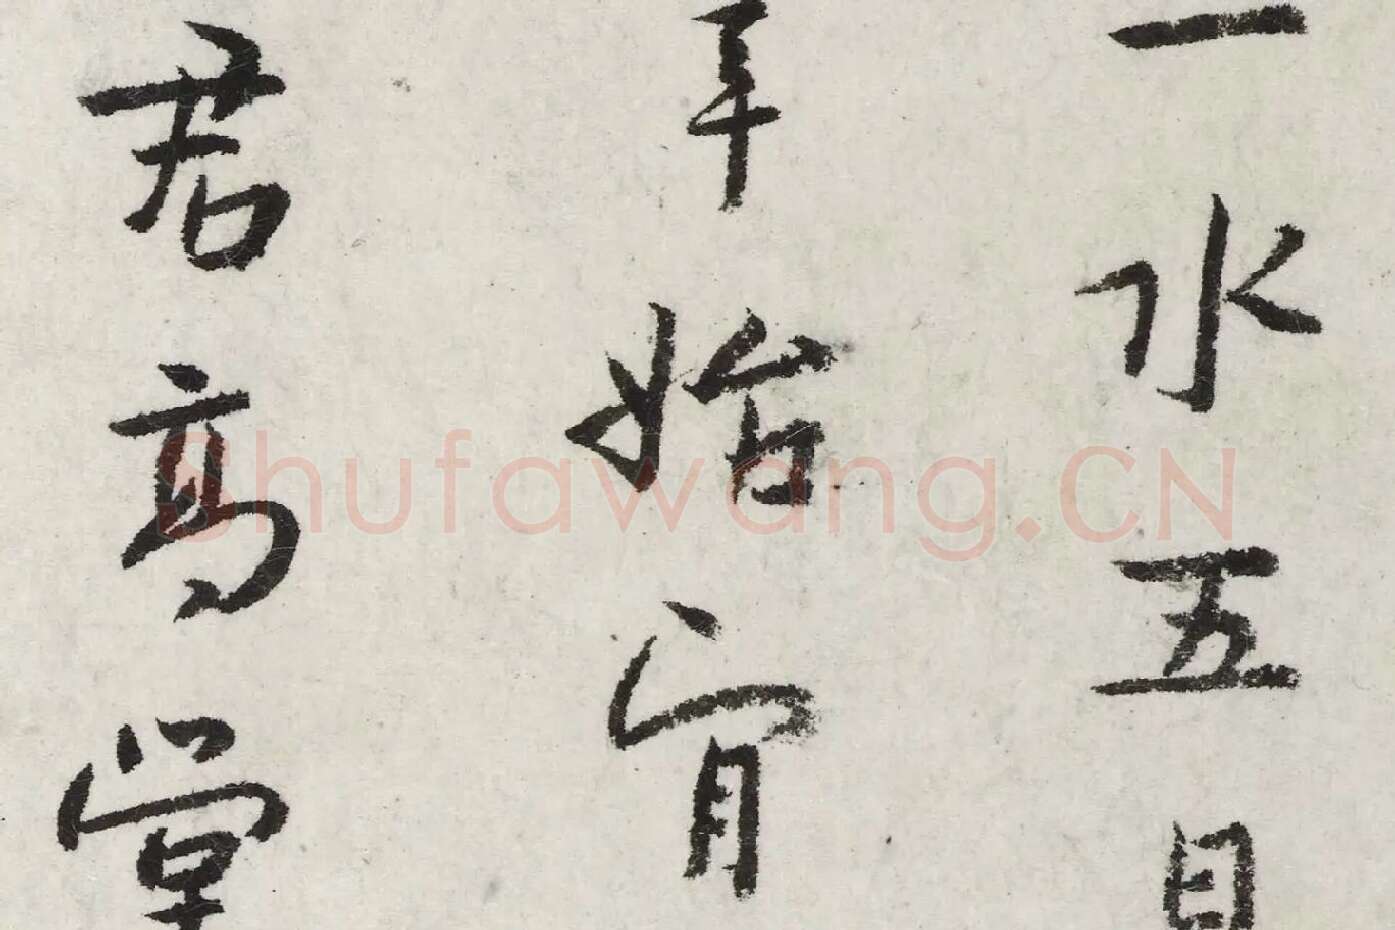 一水五日
宰始肯
君高堂
Shufawang.CN